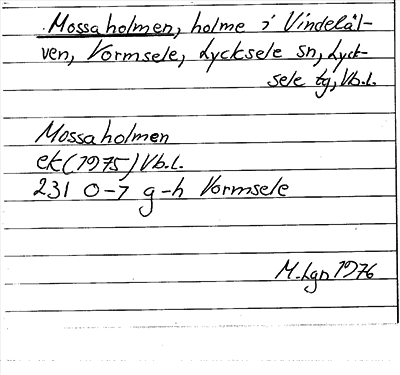 Mossaholmen, holme i Vindeläl-
ven, Vormsele, Lycksele sn, Lyck-
sele tg, Vb.l.
Mossaholmen
ek (1975) Vb.l.
231 0-7 g-h Vormsele
M-Lgn 1976